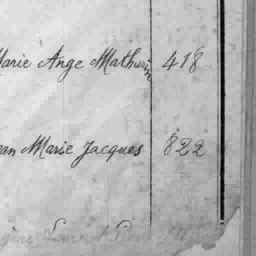 Marie Ange Mathurin 418
Jean Marie Jacques 822